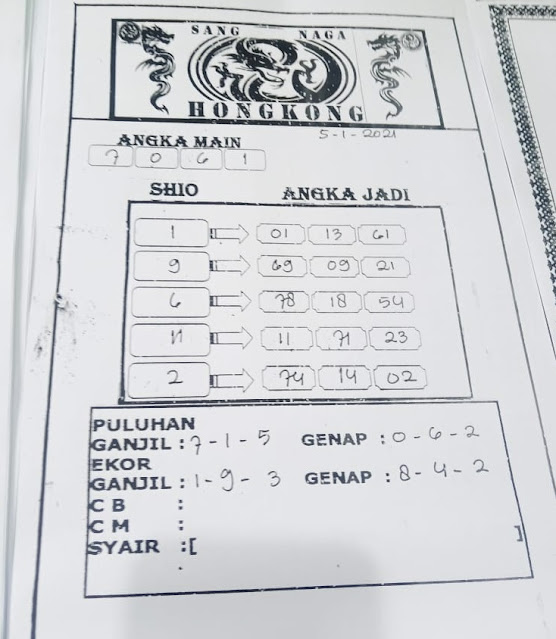 SANG NAGA
HONGKONG
5-1-2021
ANGKA MAIN
7 0 6 1
SHIO ANGKA JADI
1 01 13 61
9 69 09 21
6 78 18 54
11 11 71 23
2 74 14 02
PULUHAN
GANJIL : 7-1-5 GENAP : 0-6-2
EKOR
GANJIL : 1-9-3 GENAP : 8-4-2
C B :
C M :
SYAIR :[ ]
.